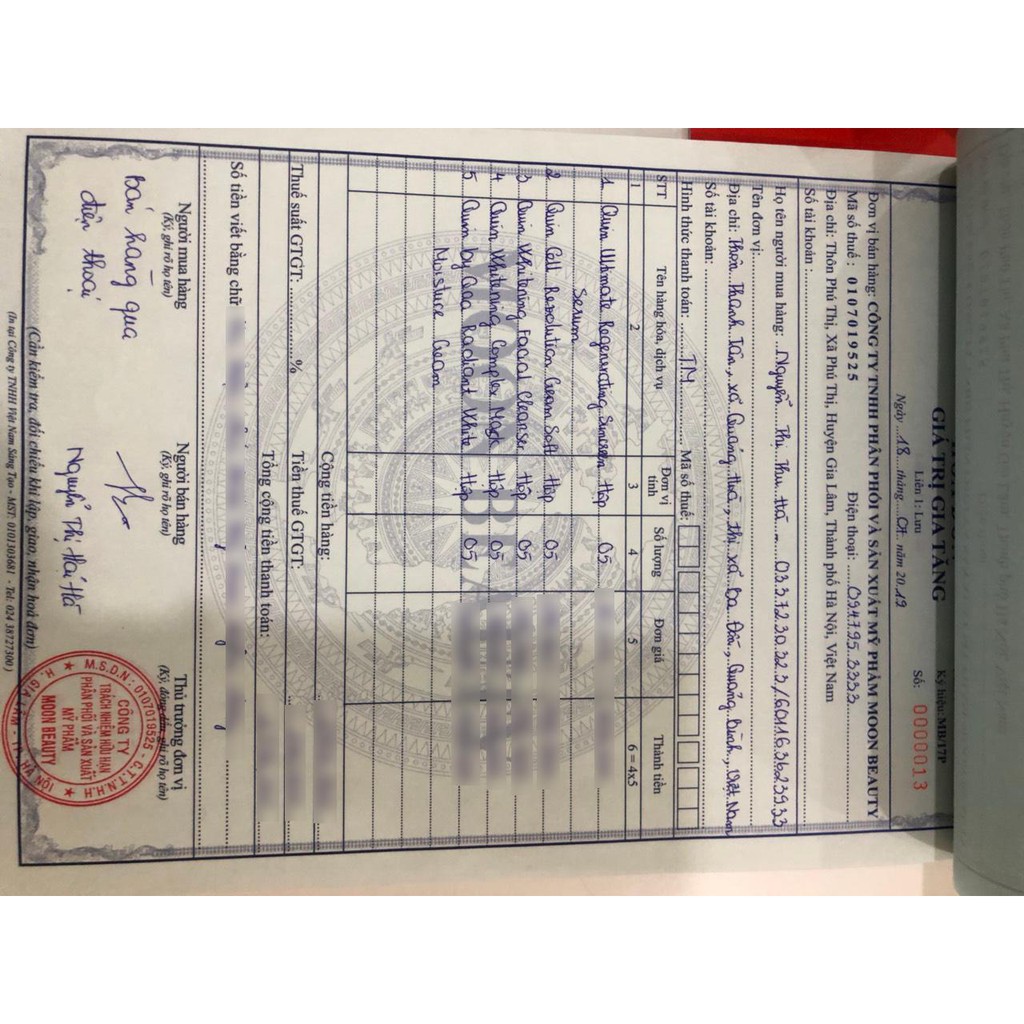 GIÁ TRỊ GIA TĂNG
Ký hiệu: MB/17P
Liên 1: Lưu
Số: 0000013
Ngày 18 tháng 01 năm 2019
Đơn vị bán hàng: CÔNG TY TNHH PHÂN PHỐI VÀ SẢN XUẤT MỸ PHẨM MOON BEAUTY
Mã số thuế: 0107019525 Điện thoại: 094.795.3333
Địa chỉ: Thôn Phú Thị, Xã Phú Thị, Huyện Gia Lâm, Thành phố Hà Nội, Việt Nam
Số tài khoản:
Họ tên người mua hàng: Nguyễn Thị Thu Hà - 0337230323/601163623933
Tên đơn vị:
Địa chỉ: Thôn Thanh Tân, xã Quảng Hoà, thị xã Ba Đồn, Quảng Bình, Việt Nam
Số tài khoản:
Hình thức thanh toán: TM Mã số thuế:
STT Tên hàng hóa, dịch vụ Đơn vị tính Số lượng Đơn giá Thành tiền
1 2 3 4 5 6 = 4x5
1 Quin Ultimate Regenerating Suncren Hộp 05
Serum
2 Quin Cell Resolution Cream Soft Hộp 05
3 Quin Whitening Facial Cleanser Hộp 05
4 Quin Whitening Complex Mask Hộp 05
5 Quin by Radiant White Hộp 05
Moisture Cream
Cộng tiền hàng:
Thuế suất GTGT: % Tiền thuế GTGT:
Tổng cộng tiền thanh toán:
Số tiền viết bằng chữ
Người mua hàng Người bán hàng Thủ trưởng đơn vị
(Ký, ghi rõ họ tên) (Ký, ghi rõ họ tên) (Ký, đóng dấu, ghi rõ họ tên)
Bán hàng qua
điện thoại
Nguyễn Thị Hải Hà
M.S.D.N: 0107019525 - C.T.T.N.H.H
CÔNG TY
TRÁCH NHIỆM HỮU HẠN
PHÂN PHỐI VÀ SẢN XUẤT
MỸ PHẨM
MOON BEAUTY
H. GIA LÂM - TP. HÀ NỘI
(Cần kiểm tra, đối chiếu khi lập, giao, nhận hoá đơn)
(In tại Công ty TNHH Việt Nam Sáng Tạo - MST: 0101303681 - Tel: 024 38727300)